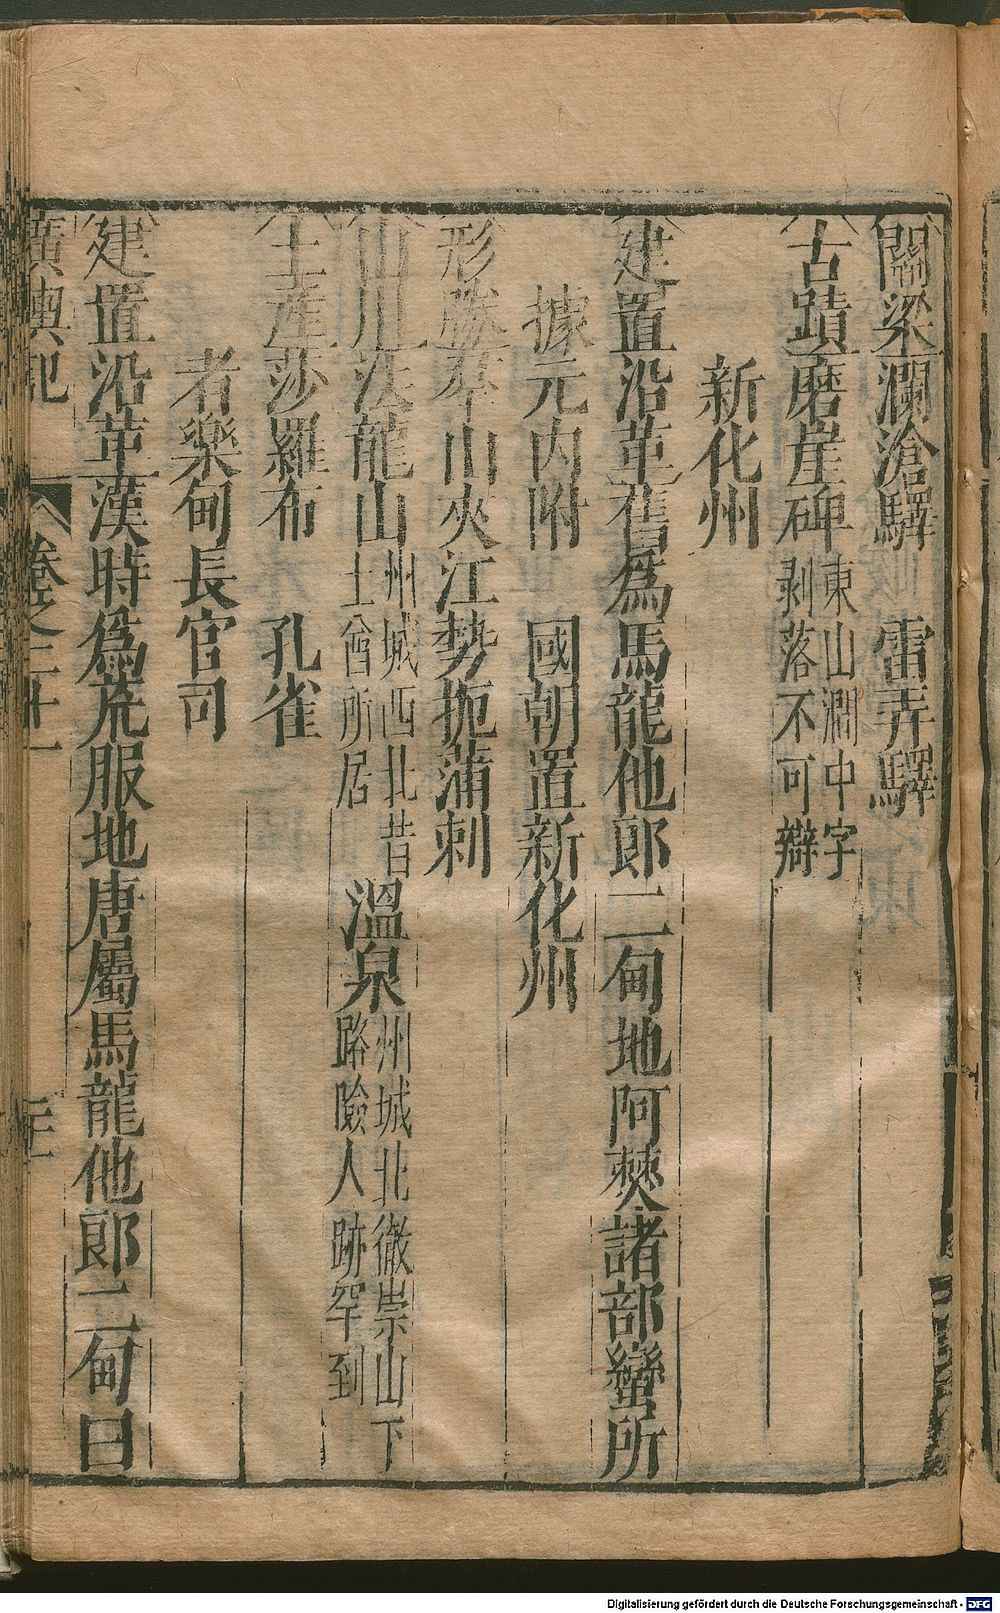 關梁瀾滄驛 雷弄驛
古蹟磨崖碑東山澗中字剥落不可辯
新化州
建置沿革舊爲馬龍他郎二甸地阿僰諸部蠻所
據元內附 國朝置新化州
形勝羣山夾江勢扼蒲刺
山川法龍山州城西北昔土酋所居 溫泉州城北徹崇山下路險人跡罕到
土產莎羅布 孔雀
者樂甸長官司
建置沿革漢時爲荒服地唐屬馬龍他郎二甸曰
廣輿記 卷之二十一
Digitalisierung gefördert durch die Deutsche Forschungsgemeinschaft - DFG